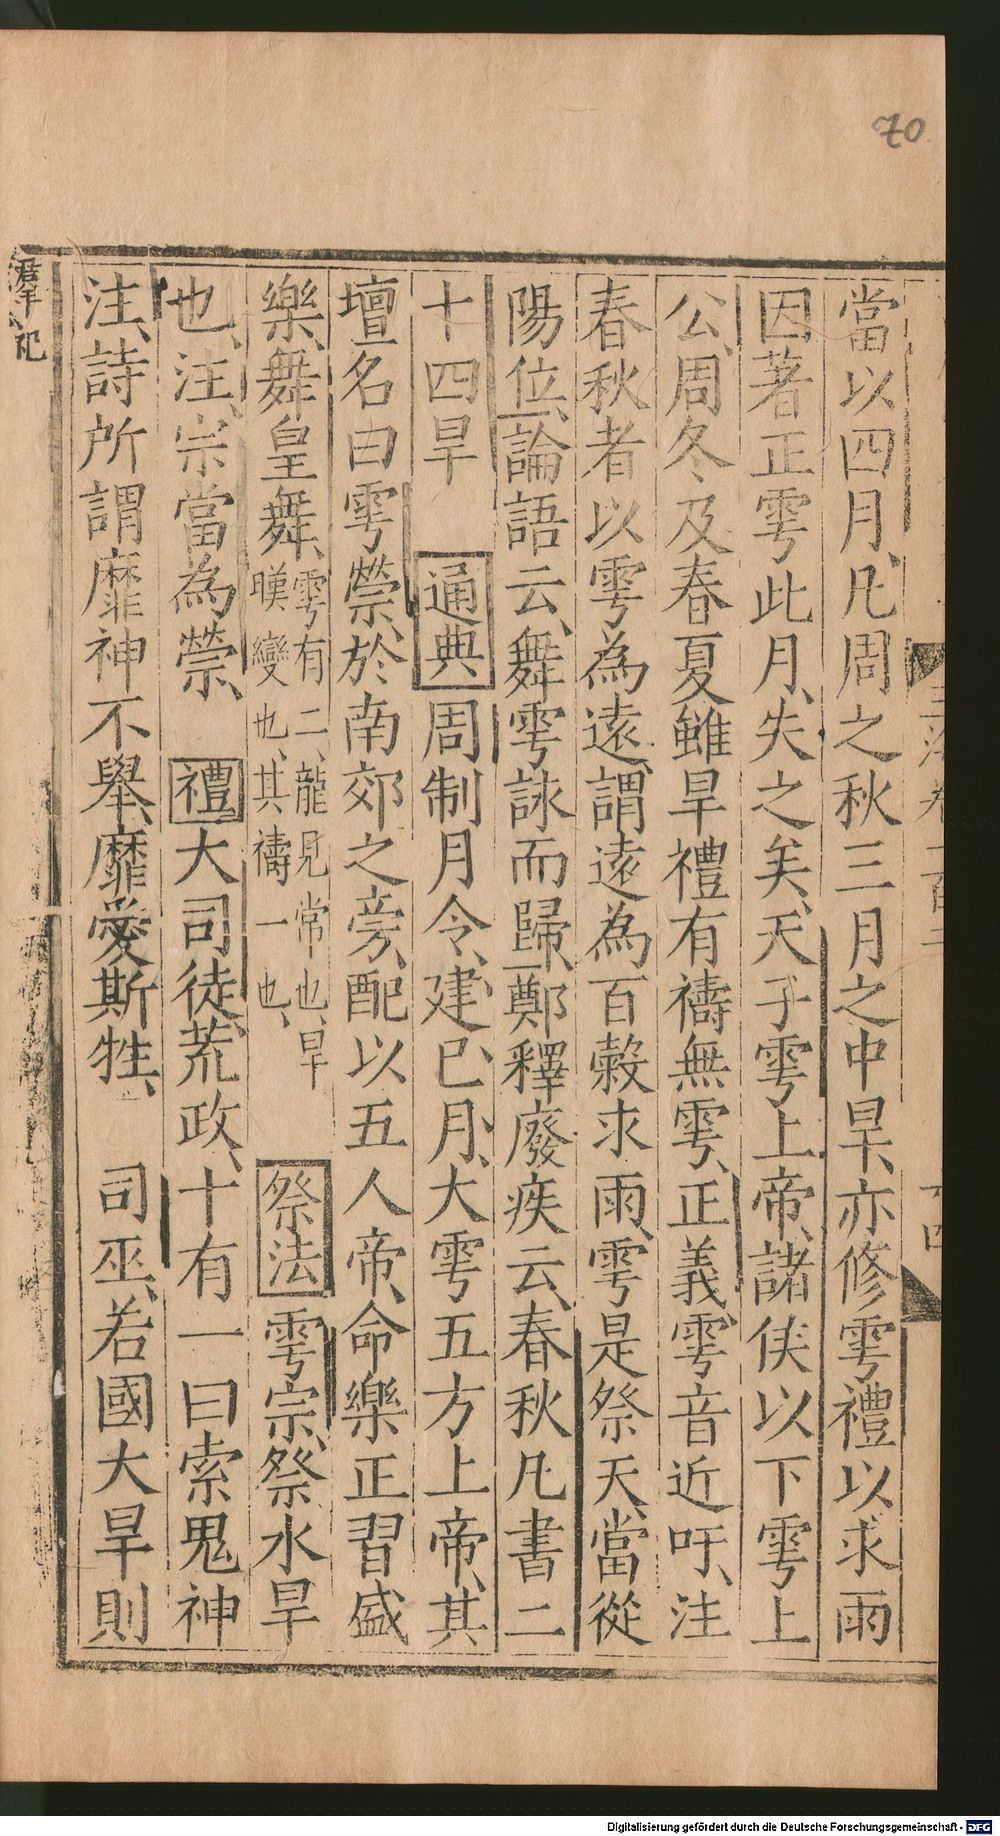 70
當以四月、凡周之秋三月之中旱、亦修雩禮以求雨
因著正雩此月、失之矣、天子雩上帝、諸侯以下雩上
公、周冬及春夏雖旱禮有禱無雩、正義雩音近吁、注
春秋者以雩為遠、謂遠為百糓求雨、雩是祭天、當從
陽位、論語云、舞雩詠而歸、鄭釋廢疾云、春秋凡書二
十四旱 通典周制月令、建巳月、大雩五方上帝、其
壇名曰雩禜、於南郊之旁、配以五人帝、命樂正習盛
樂、舞皇舞、雩有二、龍見常也、旱
暵變也、其禱一也、 祭法雩宗、祭水旱
也、注、宗當為禜、 禮大司徒、荒政、十有一曰索鬼神
注、詩所謂靡神不舉、靡愛斯牲、 司巫、若國大旱則
羣祀
Digitalisierung gefördert durch die Deutsche Forschungsgemeinschaft - DFG